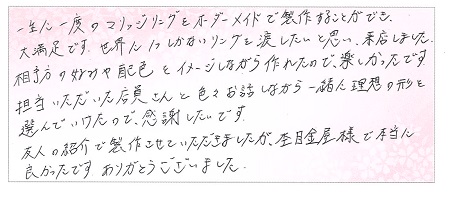 一生に一度のマリッジリングをオーダーメイドで製作することができ、
大満足です。世界に1つしかないリングを渡したいと思い、来店しました。
相手方の好みや配色をイメージしながら作れたので、楽しかったです。
担当いただいた店員さんと色々お話しながら一緒に理想の形を
選んでいけたので、感謝したいです。
友人の紹介で製作させていただきましたが、杢目金屋様で本当に
良かったです。ありがとうございました。